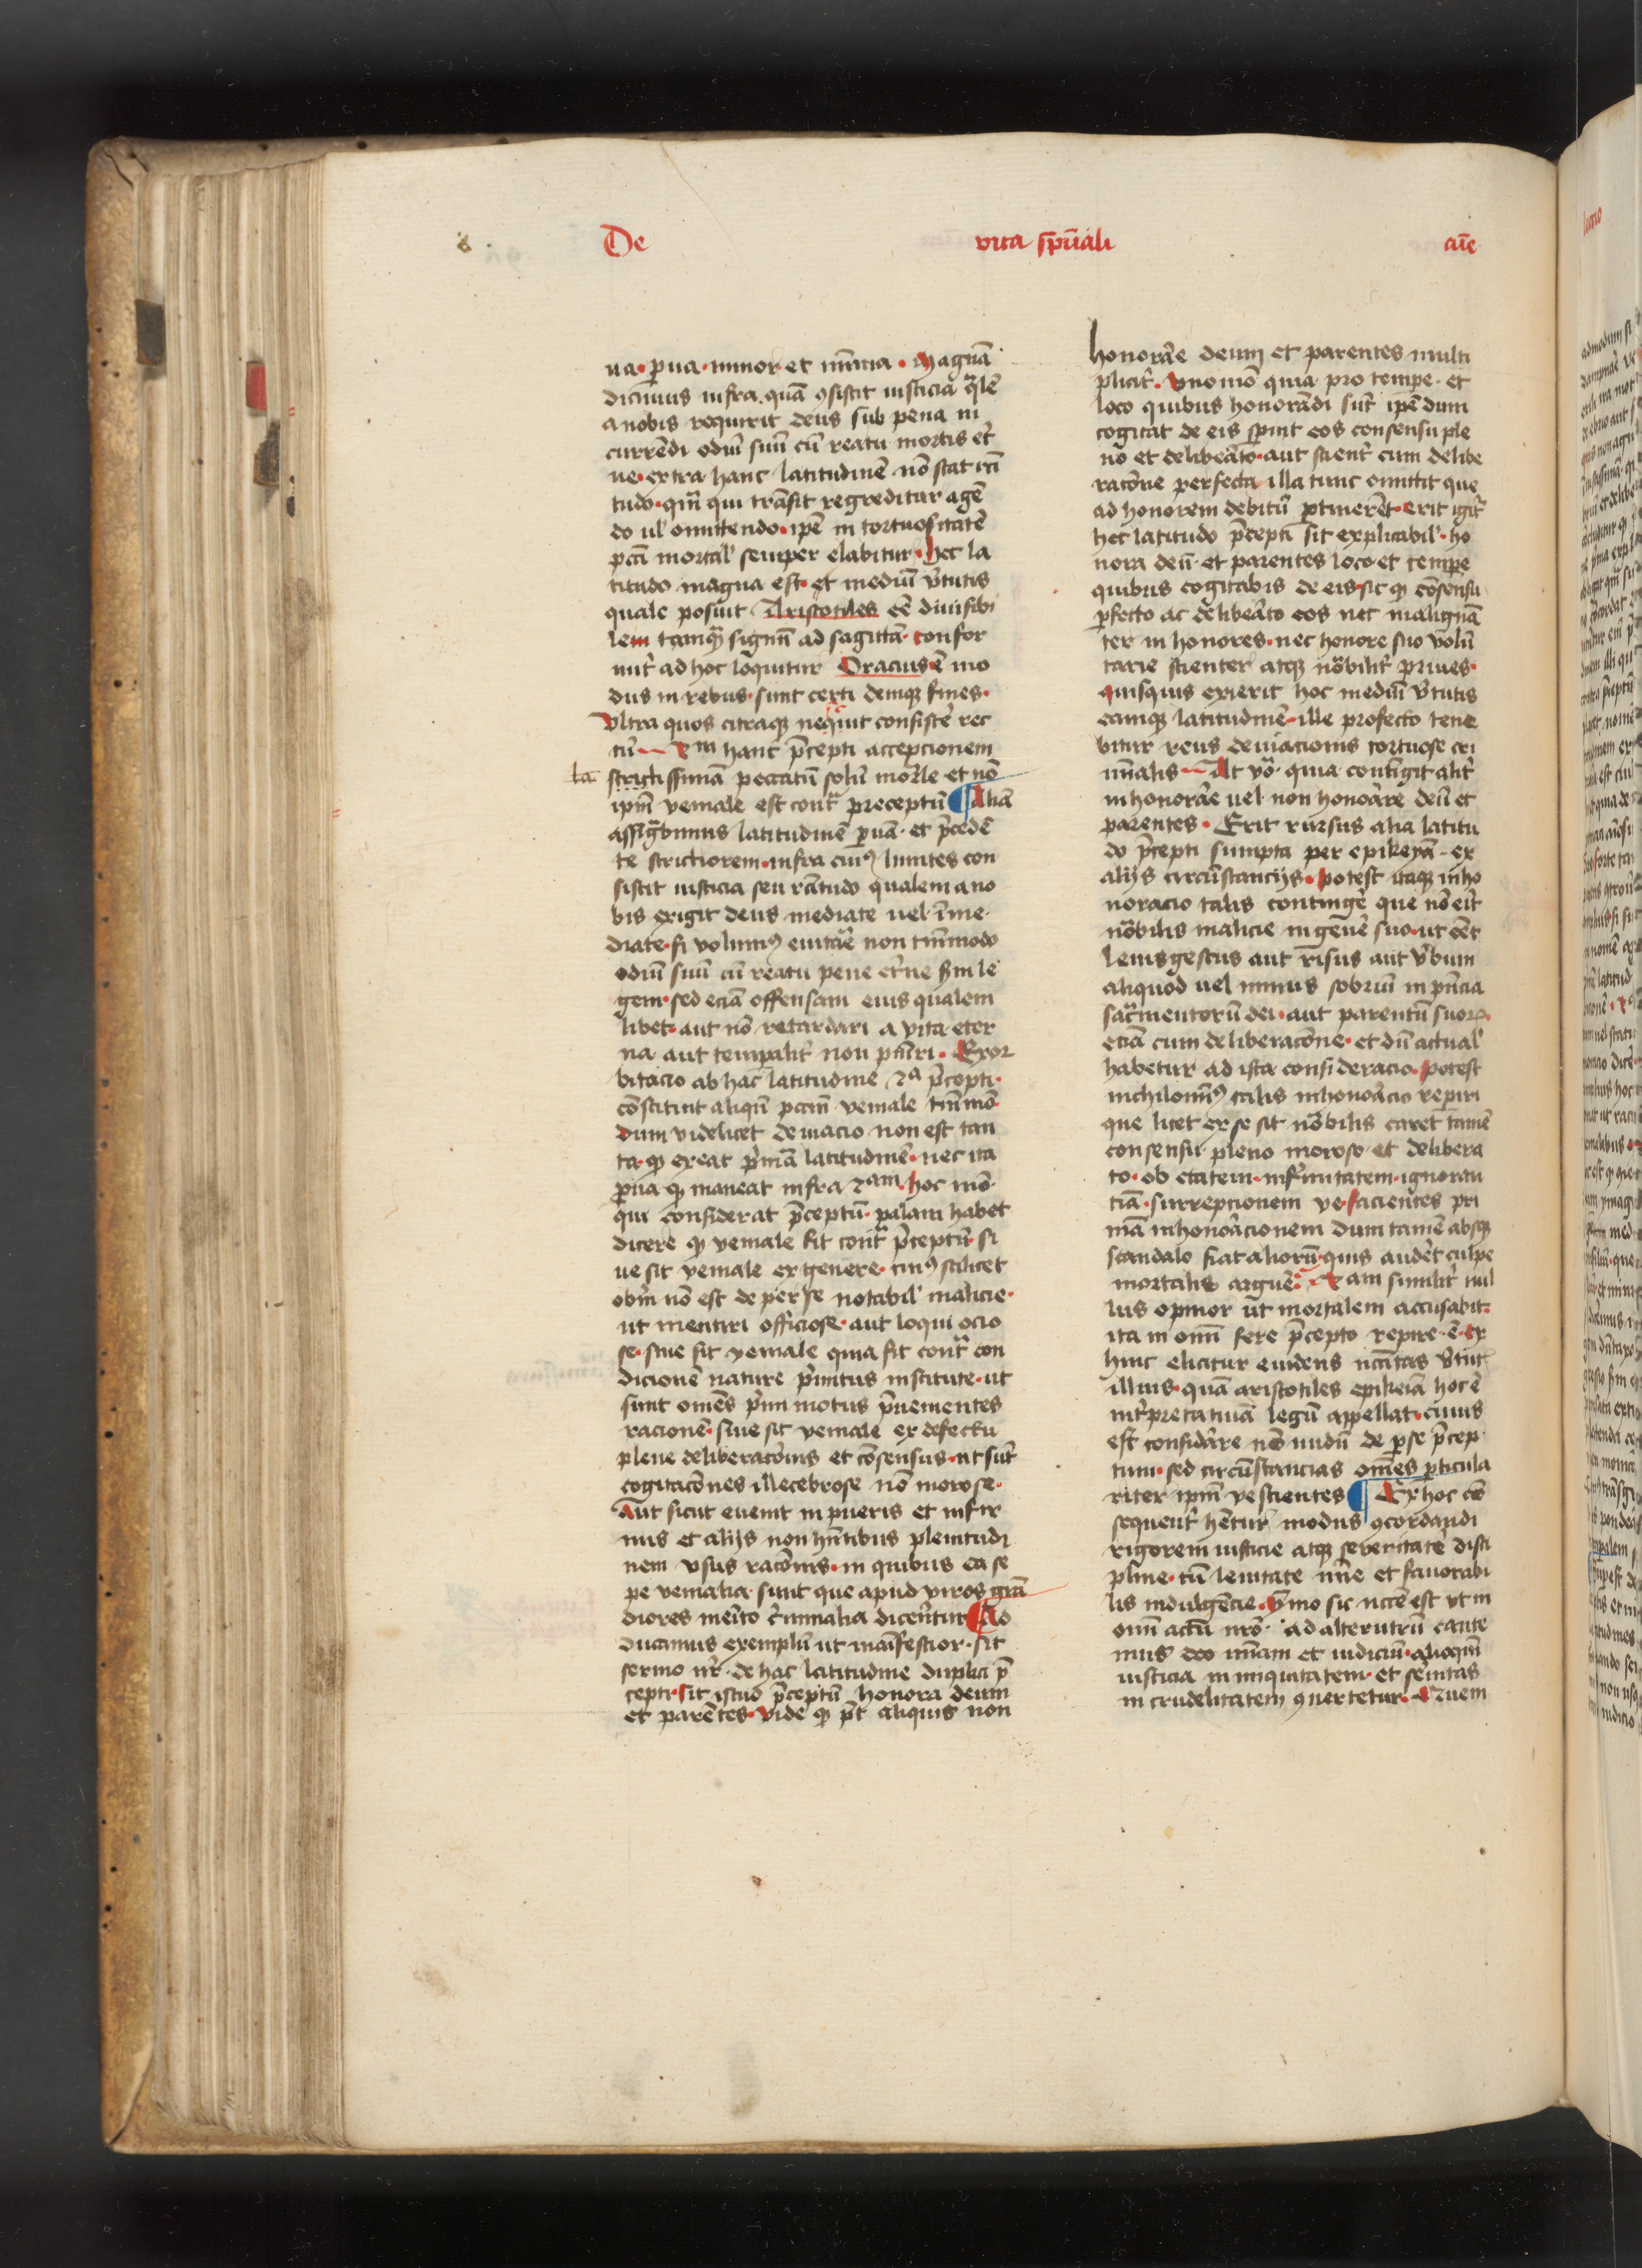 De vita sp̄uāli aīe
ua · ꝑua · minor et mīnīa · Magnā
dicimus infra quā ꝯsistit iusticia q̄lē
a nobis requirit deus sub pena in
currēdi odiū suū cū reatu mortis et̄
ne · extra hanc latitudinē nō stat rc̄ti
tudo · qm̄ qui trāsit regreditur agē
do ul̄ omittendo · ip̄e in tortuositatē
pcc̄i mortal̄ semper elabitur · hec la
titudo magna est et mediū v̄tutis
quale posuit Aristotiles eē diuisibi
lem tamqȝ signū ad sagittā · confor
mit̄ ad hoc loquitur Oracius ē mo
dus in rebus · sunt certi deniqȝ fines ·
Vltra quos citraqȝ nequit consistē rec
tū 2m hanc p̄cepti accepcionem
la strictissimā peccatū solū mor̄le et nō
ip̄m veniale est cont̄ preceptū ¶ Aliā
assig̅bimus latitudinē ꝑuā · et p̄cedē
te strictiorem · infra cuiꝰ limites con
sistit iusticia seu rc̄titudo qualem a no
bis exigit deus mediate uel īme
diate · si volumꝰ euitare non tm̄modo
odiū suū cū reatu pene et̄ne scd̄m le
gem · sed eciā offensam eius qualem
libet · aut nō retardari a vita eter
na aut temporalit̄ non pūiri · Exor
bitacio ab hac latitudine 2a p̄cepti ·
cōstituit aliqn̄ pccm̄ veniale tm̄mo
dum videlicet deuiacio non est tan
ta · qȝ exeat p̄mā latitudinē · nec ita
ꝑua qȝ maneat infra 2am · hoc mō
qui considerat p̄ceptū · palam habet
dicere qȝ veniale sit cont̄ p̄ceptū · si
ue sit veniale ex genere · cuiꝰ scilicet
obm̄ nō est de per se notabil̄ malicie ·
ut mentiri officiose · aut loqui ocio
se · siue sit veniale quia sit cont̄ con
dicionē nature p̄mitus institute · ut
sunt om̄es p̄mi motus p̄uenientes
racionē · siue sit veniale ex defectu
plene deliberacōnis et cōsensus · ut sūt
cogitacōnes illecebrose nō morose ·
Aut sicut euenit in pueris et infir
mis et alijs non hn̄tibus plenitudi
nem vsus racōnis · in quibus ea se
pe venialia sunt que apud viros gran
diores mer̄ito c̄minalia dicerētur ¶ Ad
ducamus exemplū ut manifestior sit
sermo nr̄ · de hac latitudine duplici p̄
cepti · sit istud p̄ceptū honora deum
et parētes · vide qȝ pt̄ aliquis non
honorare deum et parentes multi
plicit̄ · Vno mō quia pro tempe · et
loco quibus honorādi sūt ip̄e dum
cogitat de eis spernit eos consensu ple
no et deliberato · aut scient̄ cum delibe
racōne perfecta illa tunc omittit que
ad honorem debitū ptinerēt · erit igit̄
hec latitudo p̄cepti sit explicabil̄ · ho
nora deū · et parentes loco et tempe
quibus cogitabis de eis · sic qȝ cōsensu
ꝑfecto ac deliberato eos nec malignā
ter inhonores · nec honore suo volū
tarie scienter atqȝ notabilit̄ priues ·
quisquis exierit hoc mediū v̄tutis
eamqȝ latitudinē · ille profecto tene
bitur reus deuiacionis tortuose cri
mīalis At v̄o quia contigit alit̄
inhonorare uel non honorare deū et
parentes · Erit rursus alia latitu
do p̄cepti sumpta per epikeyā · ex
alijs circūstancijs · potest itaqȝ inho
noracio talis contingē que nō eit̄
notabilis malicie in genere suo · ut eēt
leuis gestus aut risus aut v̄bum
aliquod uel minus sobriū in p̄ncia
sacramentorū dei · aut parentū suorꝝ
eciā cum deliberacōne · et dū actual̄
habetur ad ista consideracio · potest
nichilominꝰ talis inhonoracio repiri
que licet ex se sit notabilis caret tamē
consensu pleno moroso et delibera
to · ob etatem · infirmitatem · ignoran
tiā · surrepcionem ve · facientes pri
mā inhonoracionem dum tamē absqȝ
scandalo fiat aliorū · quis audēt culpe
mortalis arguē · 2am similit̄ nul
lus opinor ut mortalem accusabit ·
ita in omī fere p̄cepto repire ē · ex
hinc elicitur euidens nc̄citas v̄tut̄
illius · quā aristotiles epikeiā hoc ē
int̄pretatiuā legū appellat · cuius
est considāre nō nudū de ꝑse p̄cep
tum · sed circūstancias om̄es ꝑticula
riter ip̄m vestientes ¶ Ex hoc cō
sequent̄ hētur modus ꝯcordandi
rigorem iusticie atqȝ seueritatē disci
pline · cū lenitate mīe et fauorabi
lis indulgēcie · ymmo sic nc̄ce est ut in
omī actū nr̄o · ad alterutrū cante
mus deo mīam et iudiciū · alioqin
iusticia in iniquitatem · et seueritas
in crudelitatem ꝯuertetur · Quem